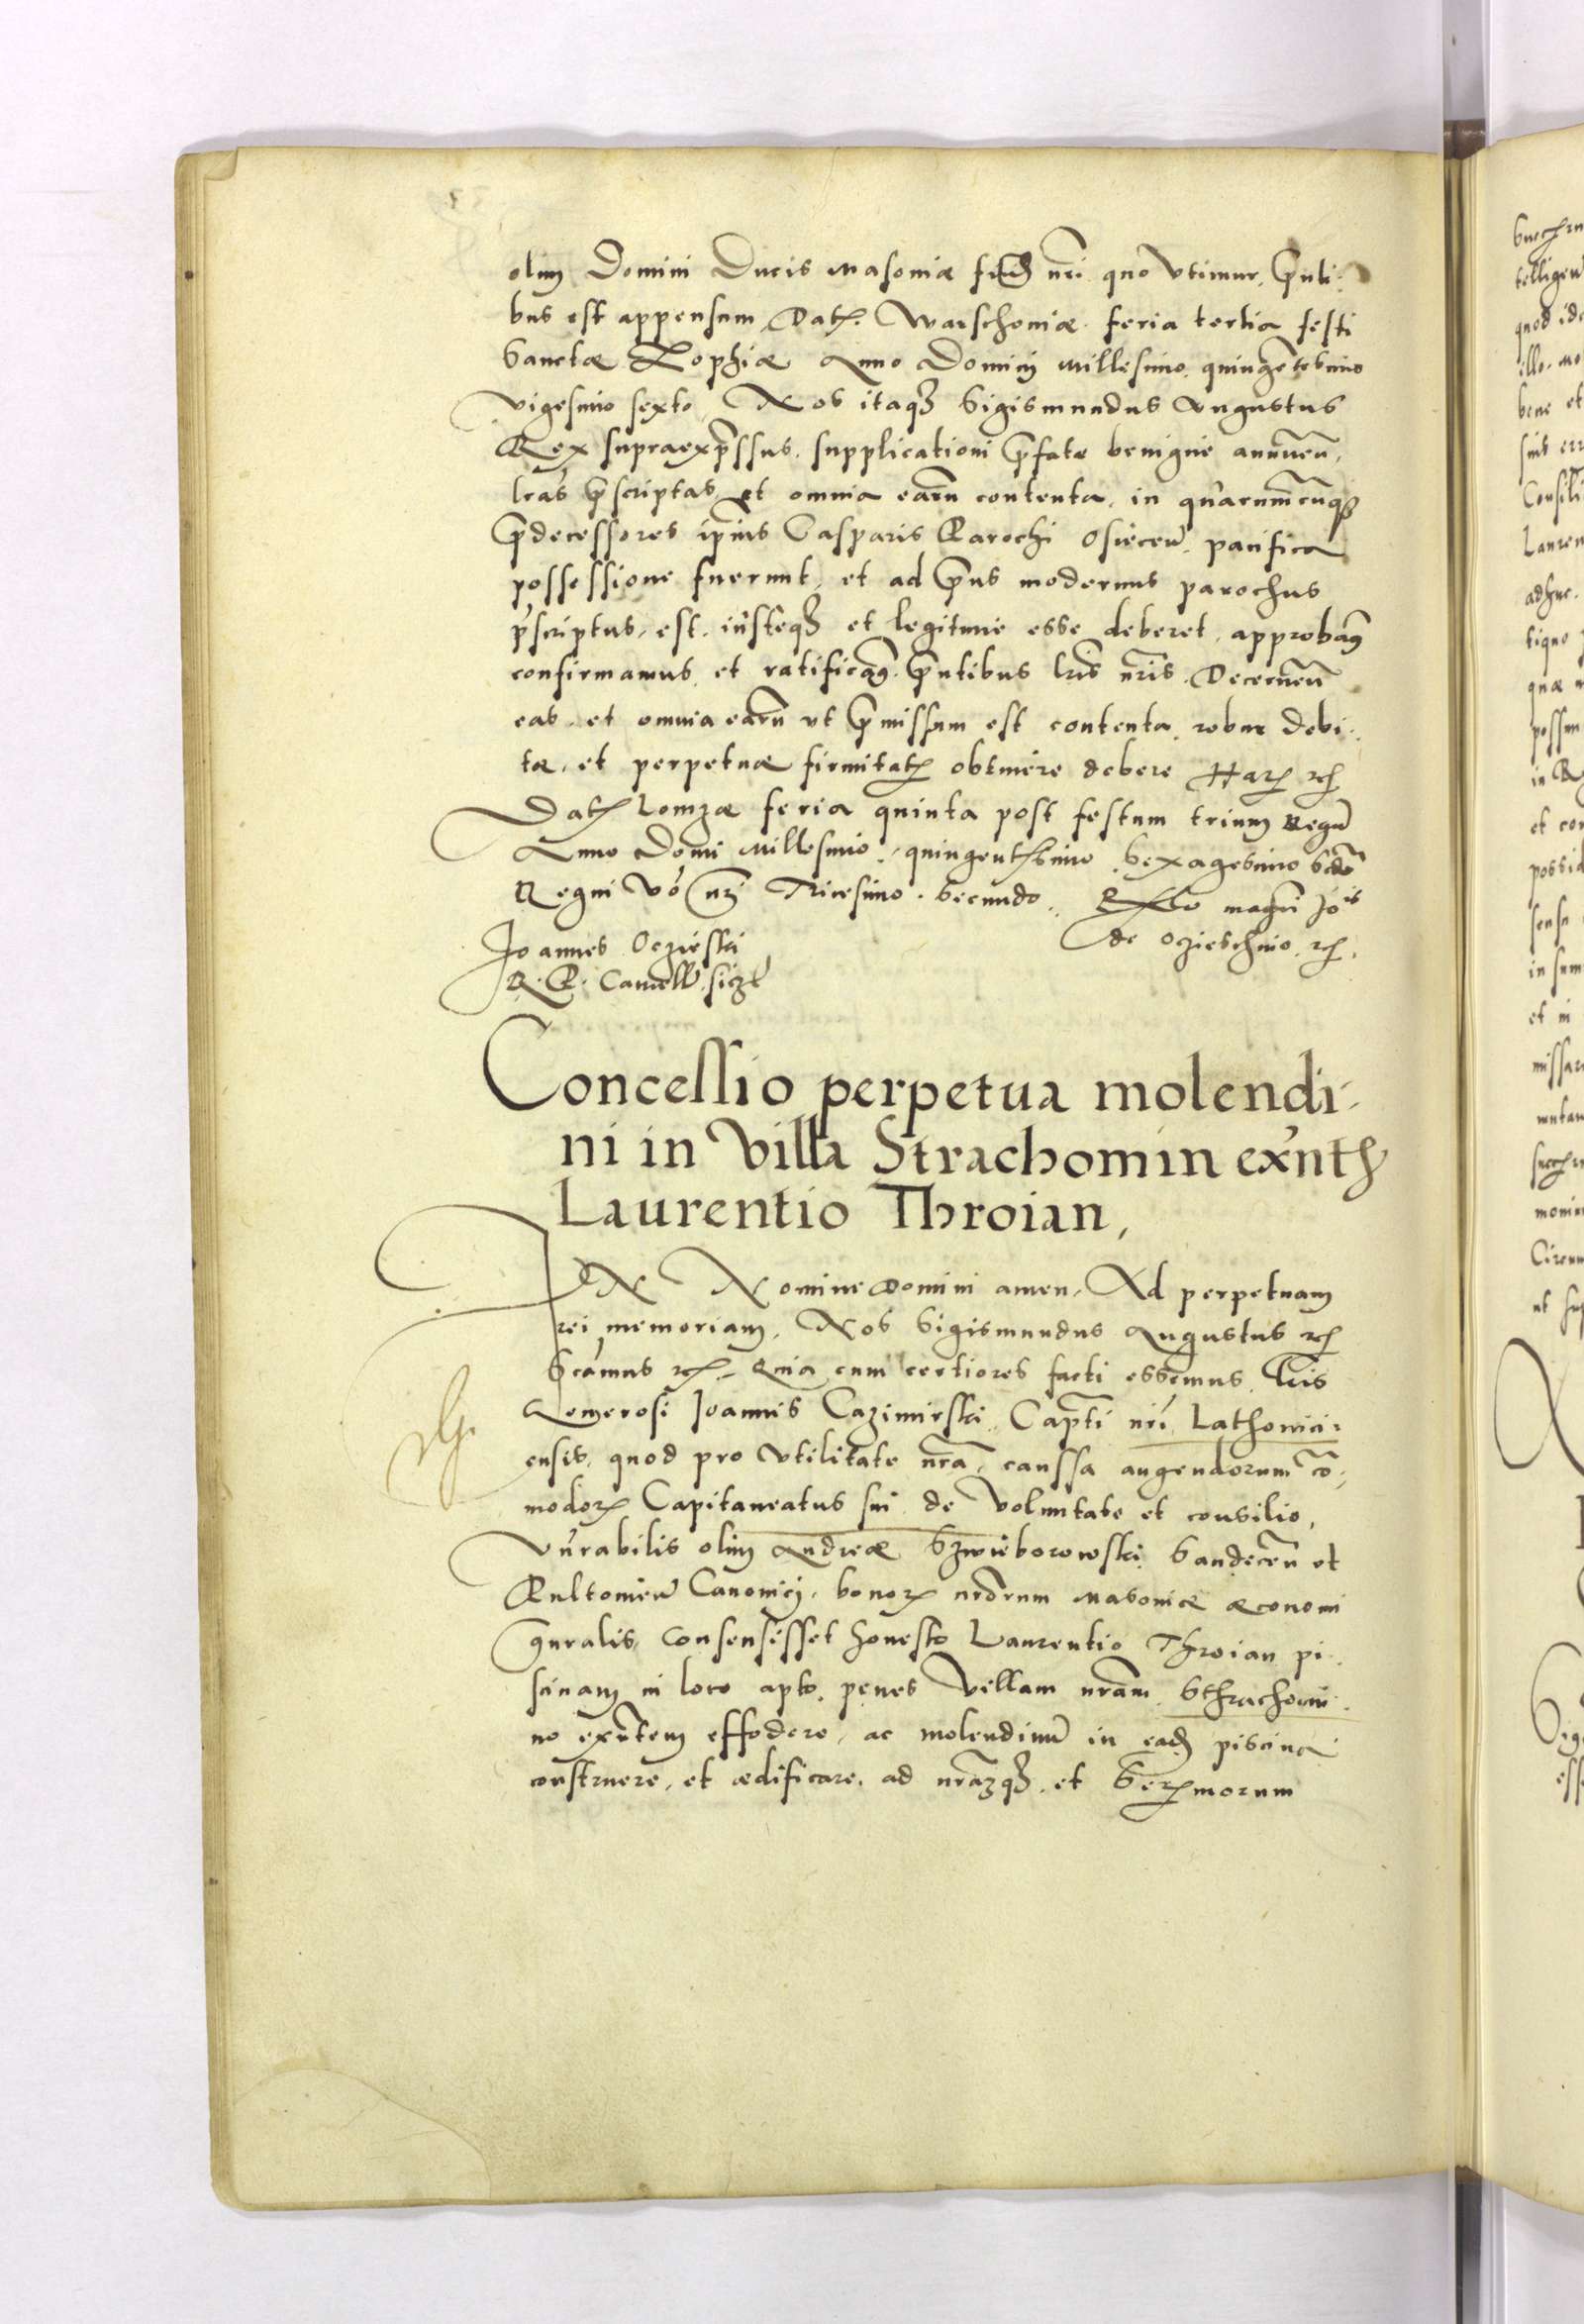 olim Domini Ducis Masoviæ frris nri quo vtimur. Pnti-
bus est appensum Dat. Warschoviæ feria tertia festi
Sanctæ Zophiæ Anno Domini Millesimo quingetesimo
vigesimo sexto. Nos itaq3 Sigismundus Augustus
Rex supraexpssus. supplicationi pfatæ benigne annuen.
lras pscriptas et omnia earu contenta, in quarumcuq3
pdecessores ipius Casparis Parochi Osiecen. pacifica
possessione fuerunt, et ad pns modernus parochus
pscriptus, est, iusteq3 et legitime esse deberet, approbam9
confirmamus, et ratificam9. pntibus lris nris. Decernen
eas, et omnia earu ut pmissum est contenta, robur debi-
tæ, et perpetuæ firmitat. obtinere debere Har. rc.
Dat Lomzæ feria quinta post festum trium Regu
Anno Domi Millesimo, quingentesimo, sexagesimo scdo
Regni vo nri Tricesimo. secundo. Rlo magci Jois
de Oczieschino. rc.
Joannes Oczieski
R. P. Cancell. sszt
Concessio perpetua molendi-
ni in Villa Strachomin exnt
Laurentio Throian,
IN Nomine Domini amen, Ad perpetuam
rei memoriam. Nos Sigismundus Augustus rc
Scamus rc. Quia cum certiores facti essemus, lris
Generosi Joannis Cazimirski Capti nri Lathovici-
ensis, quod pro vtilitate nra, caussa augendorum co-
modor. Capitaneatus sui de Voluntate et consilio,
Vnrabilis olim Andreæ Szwieborowski Sandecen et
Pultovien Canonici, bonor. nrorum Masoviæ œconomi
gnralis, consensisset honesto Laurentio Throian pi-
scinam in loco apto, penes Villam nram Sthrachomi-
no exntem effodere, ac molendinu in ead. piscina
construere, et ædificare, ad nra3q3, et Ser.morum